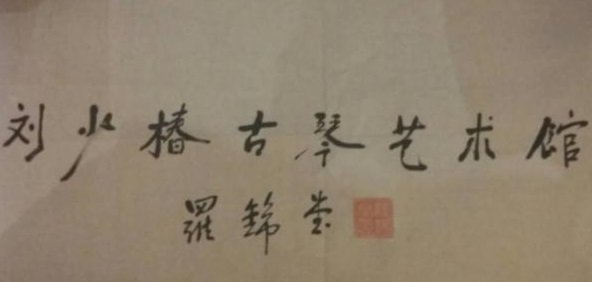 刘少椿古琴艺术馆
羅錦堂